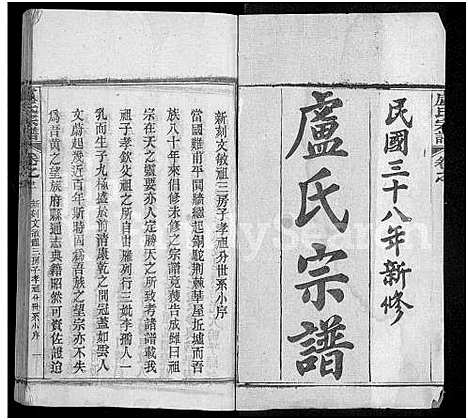 民國三十八年新修
盧氏宗譜
新刻文敏祖三房子孝祖分世系小序
當國難甫平鬩牆繼起銅駝荆棘華屋坵墟而吾
族八十年來倡修未修之宗譜竟獲告成雖曰祖
宗在天之靈要亦人定勝天之所致考諸譜載我
祖子孝欽父祖之所自出雁列行三妣李孺人一
孔而生子九極盛於前清康乾之間冠蓋如雲人
文蔚起幾近百年斯時固爲吾族之望宗亦不失
爲吾黄之望族府縣通志典籍昭然可資佐證迨
盧氏宗譜
卷之
新刻文敏祖三房子孝祖分世系小序
一